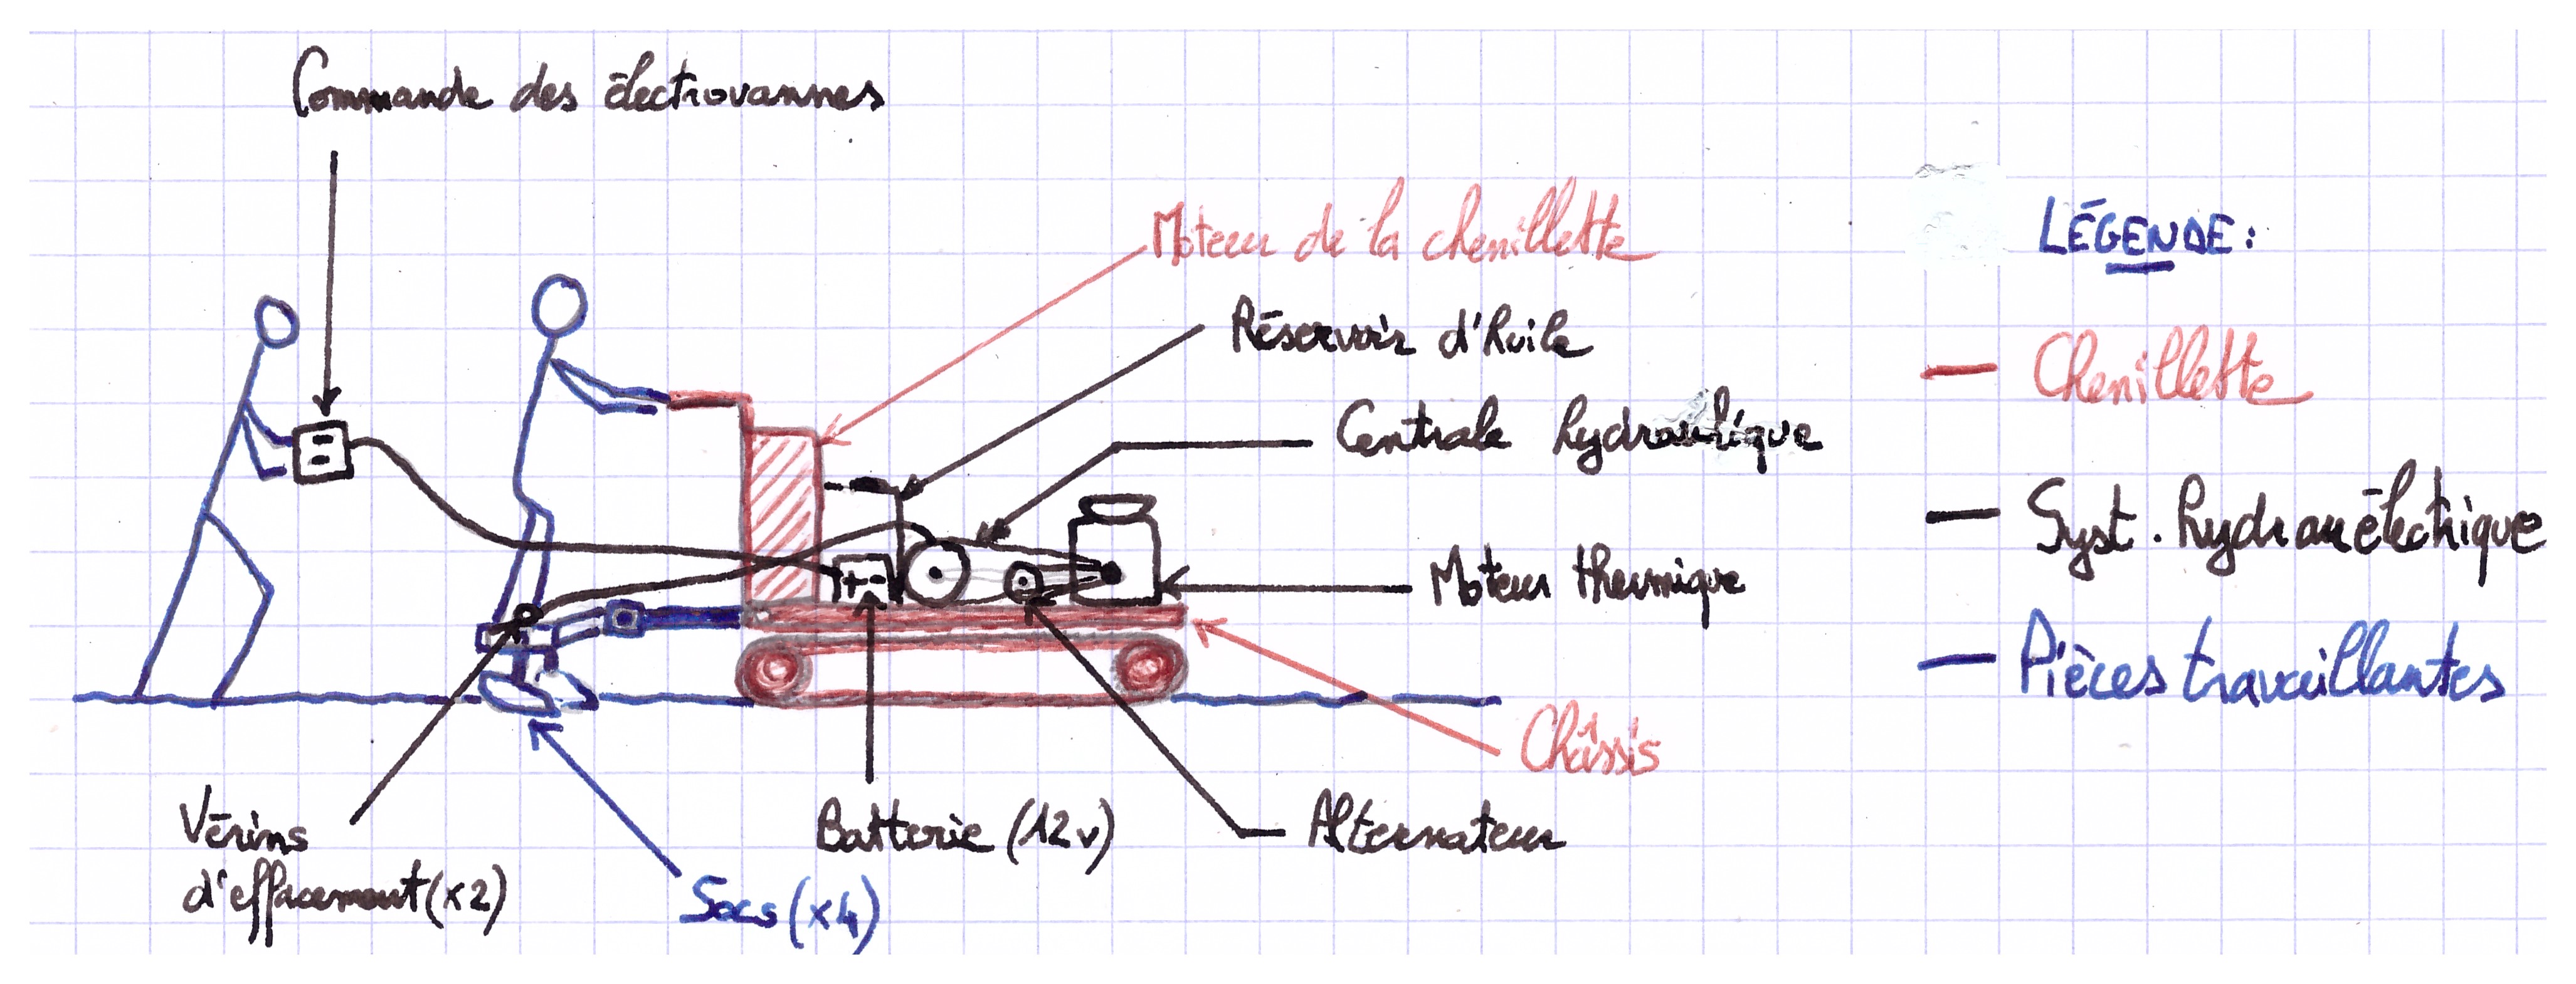 Commande des électrovannes
Moteur de la chenillette
Réservoir d'huile
Centrale hydraulique
Moteur thermique
Châssis
Alternateur
Batterie (12v)
Socs (x4)
Vérins
d'effacement (x2)
+ -
LÉGENDE :
Chenillette
Syst. hydrauélectrique
Pièces travaillantes